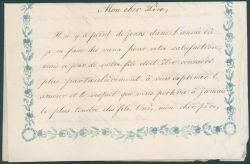 Mon cher Père,
Il n'y a point de jours dans l'année où
je ne fasse des vœux pour votre satisfaction,
mais ce jour de votre fête doit être consacré
plus particulièrement à vous exprimer l'
amour et le respect que vous porte à jamais
le plus tendre des fils. Oui, mon cher père,